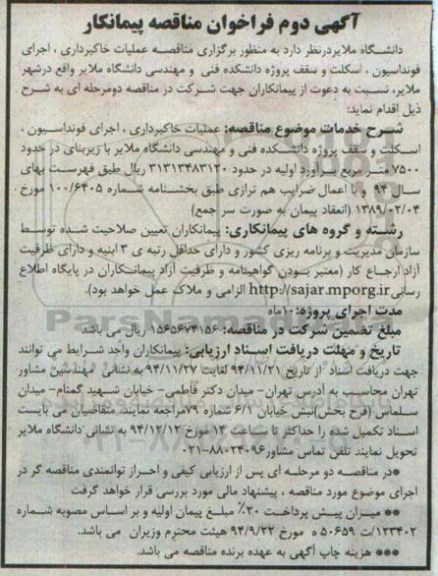 آگهی دوم فراخوان مناقصه پیمانکار
دانشگاه ملایردرنظر دارد به منظور برگزاری مناقصه عملیات خاکبرداری ، اجرای
فونداسیون ، اسکلت و سقف پروژه دانشکده فنی و مهندسی دانشگاه ملایر واقع درشهر
ملایر، نسبت به دعوت از پیمانکاران جهت شرکت در مناقصه دومرحله ای به شرح
ذیل اقدام نماید:
شرح خدمات موضوع مناقصه: عملیات خاکبرداری ، اجرای فونداسیون ،
اسکلت و سقف پروژه دانشکده فنی و مهندسی دانشگاه ملایر با زیربنای در حدود
۷۵۰۰ متر مربع برآورد اولیه در حدود ۳۱۳۱۳۴۸۳۱۲۰ ریال طبق فهرست بهای
سال ۹۴ و با اعمال ضرایب هم ترازی طبق بخشنامه شماره ۱۰۰/۶۴۰۵ مورخ
۱۳۸۹/۰۲/۰۴ (انعقاد پیمان به صورت سر جمع)
رشته و گروه های پیمانکاری: پیمانکاران تعیین صلاحیت شده توسط
سازمان مدیریت و برنامه ریزی کشور و دارای حداقل رتبه ی ۳ ابنیه و دارای ظرفیت
آزاد ارجاع کار (معتبر بودن گواهینامه و ظرفیت آزاد پیمانکاران در پایگاه اطلاع
رسانی http://sajar.mporg.ir الزامی و ملاک عمل خواهد بود).
مدت اجرای پروژه: ۱۰ماه
مبلغ تضمین شرکت در مناقصه: ۱۵۶۵۶۷۴۱۵۶ ریال می باشد
تاریخ و مهلت دریافت اسناد ارزیابی: پیمانکاران واجد شرایط می توانند
جهت دریافت اسناد از تاریخ ۹۴/۱۱/۲۱ لغایت ۹۴/۱۱/۲۷ به نشانی مهندسین مشاور
تهران محاسب به آدرس تهران- میدان دکتر فاطمی- خیابان شهید گمنام- میدان
سلماس (فرح بخش)نبش خیابان ۶/۱ شماره ۷۹مراجعه نمایند. متقاضیان می بایست
اسناد تکمیل شده را حداکثر تا ساعت ۱۴مورخ ۹۴/۱۲/۱۲ به نشانی دانشگاه ملایر
تحویل نمایند تلفن تماس مشاور۸۸۰۲۴۰۹۶-۰۲۱
●در مناقصه دو مرحله ای پس از ارزیابی کیفی و احراز توانمندی مناقصه گر در
اجرای موضوع مورد مناقصه ، پیشنهاد مالی مورد بررسی قرار خواهد گرفت
●● میزان پیش پرداخت ۲۰٪ مبلغ پیمان اولیه و بر اساس مصوبه شماره
۱۲۳۴۰۲/ت ۵۰۶۵۹ ه مورخ ۹۴/۹/۲۲ هیئت محترم وزیران می باشد.
●●● هزینه چاپ آگهی به عهده برنده مناقصه می باشد.